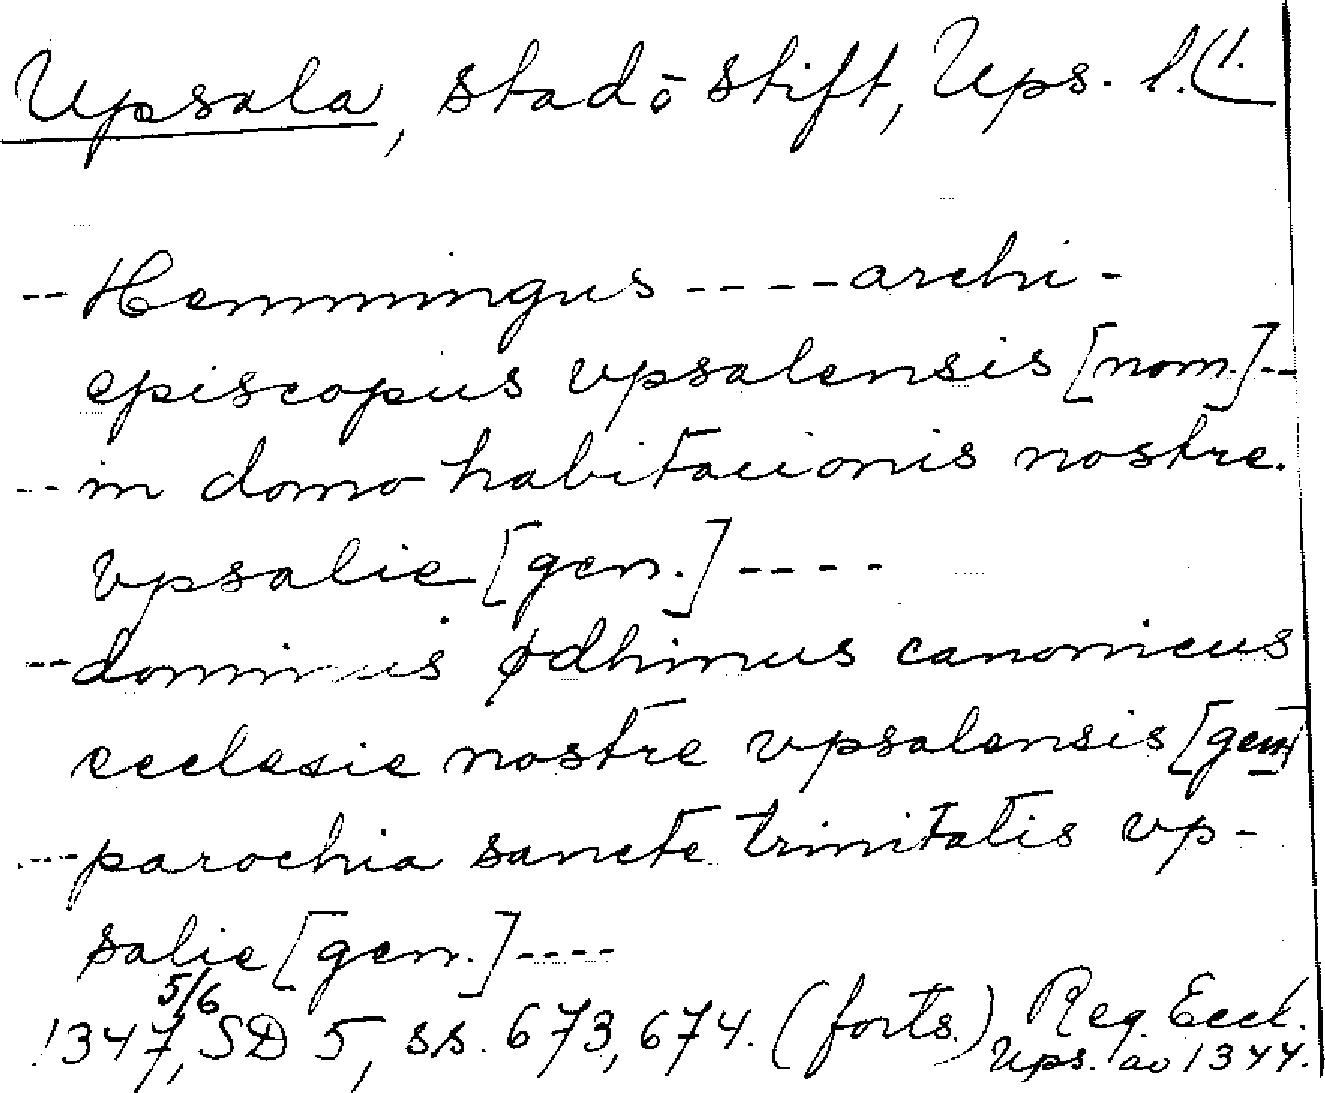 Upsala, stad o stift, Ups. l. (1.
-- Hemmingus ---- archi-
episcopus vpsalensis [nom.] --
-- in domo habitacionis nostre
vpsalie [gen.] ----
-- dominus ødhinus canonicus
ecclesie nostre vpsalensis [gen]
--- parochia sancte trinitatis vp-
salie [gen.] ----
1347 5/6, SD 5, ss. 673, 674. (forts.) Reg. Eccl.
Ups. ao 1344.